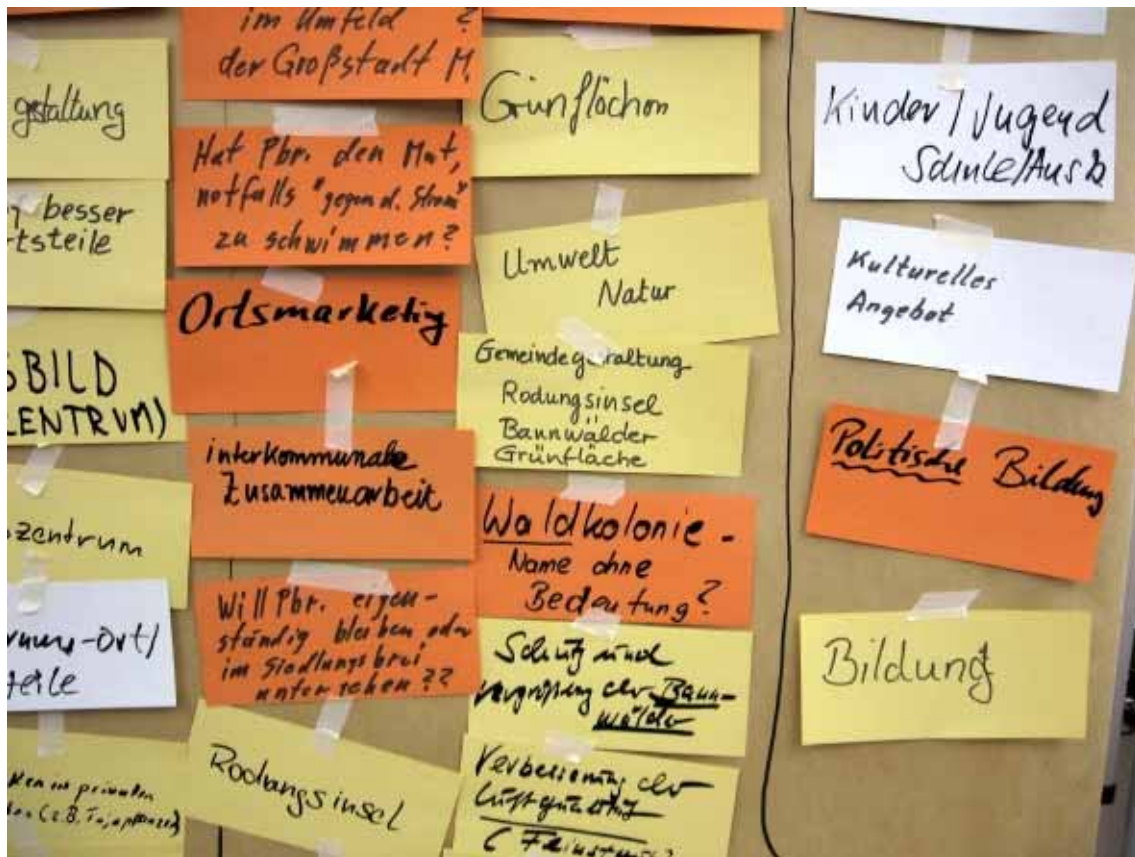 gestaltung
besser
tsteile
SBILD
ZENTRUM)
zentrum
-Ort/
teile
privaten
(z.B.
im Umfeld ?
der Großstadt M.
Hat Pbr. den Mut,
notfalls "gegen d. Strom"
zu schwimmen?
Ortsmarketing
interkommunale
Zusammenarbeit
Will Pbr. eigen-
ständig bleiben oder
im Siedlungsbrei
untergehen??
Rodungsinsel
Grünflächen
Umwelt
Natur
Gemeindegestaltung
Rodungsinsel
Bannwälder
Grünfläche
Waldkolonie -
Name ohne
Bedeutung?
Schutz und
Vergrößerung der Bann-
wälder
Verbesserung der
Luftqualität
( Feinstaub?
Kinder / Jugend
Schule/Ausb
Kulturelles
Angebot
Politische Bildung
Bildung